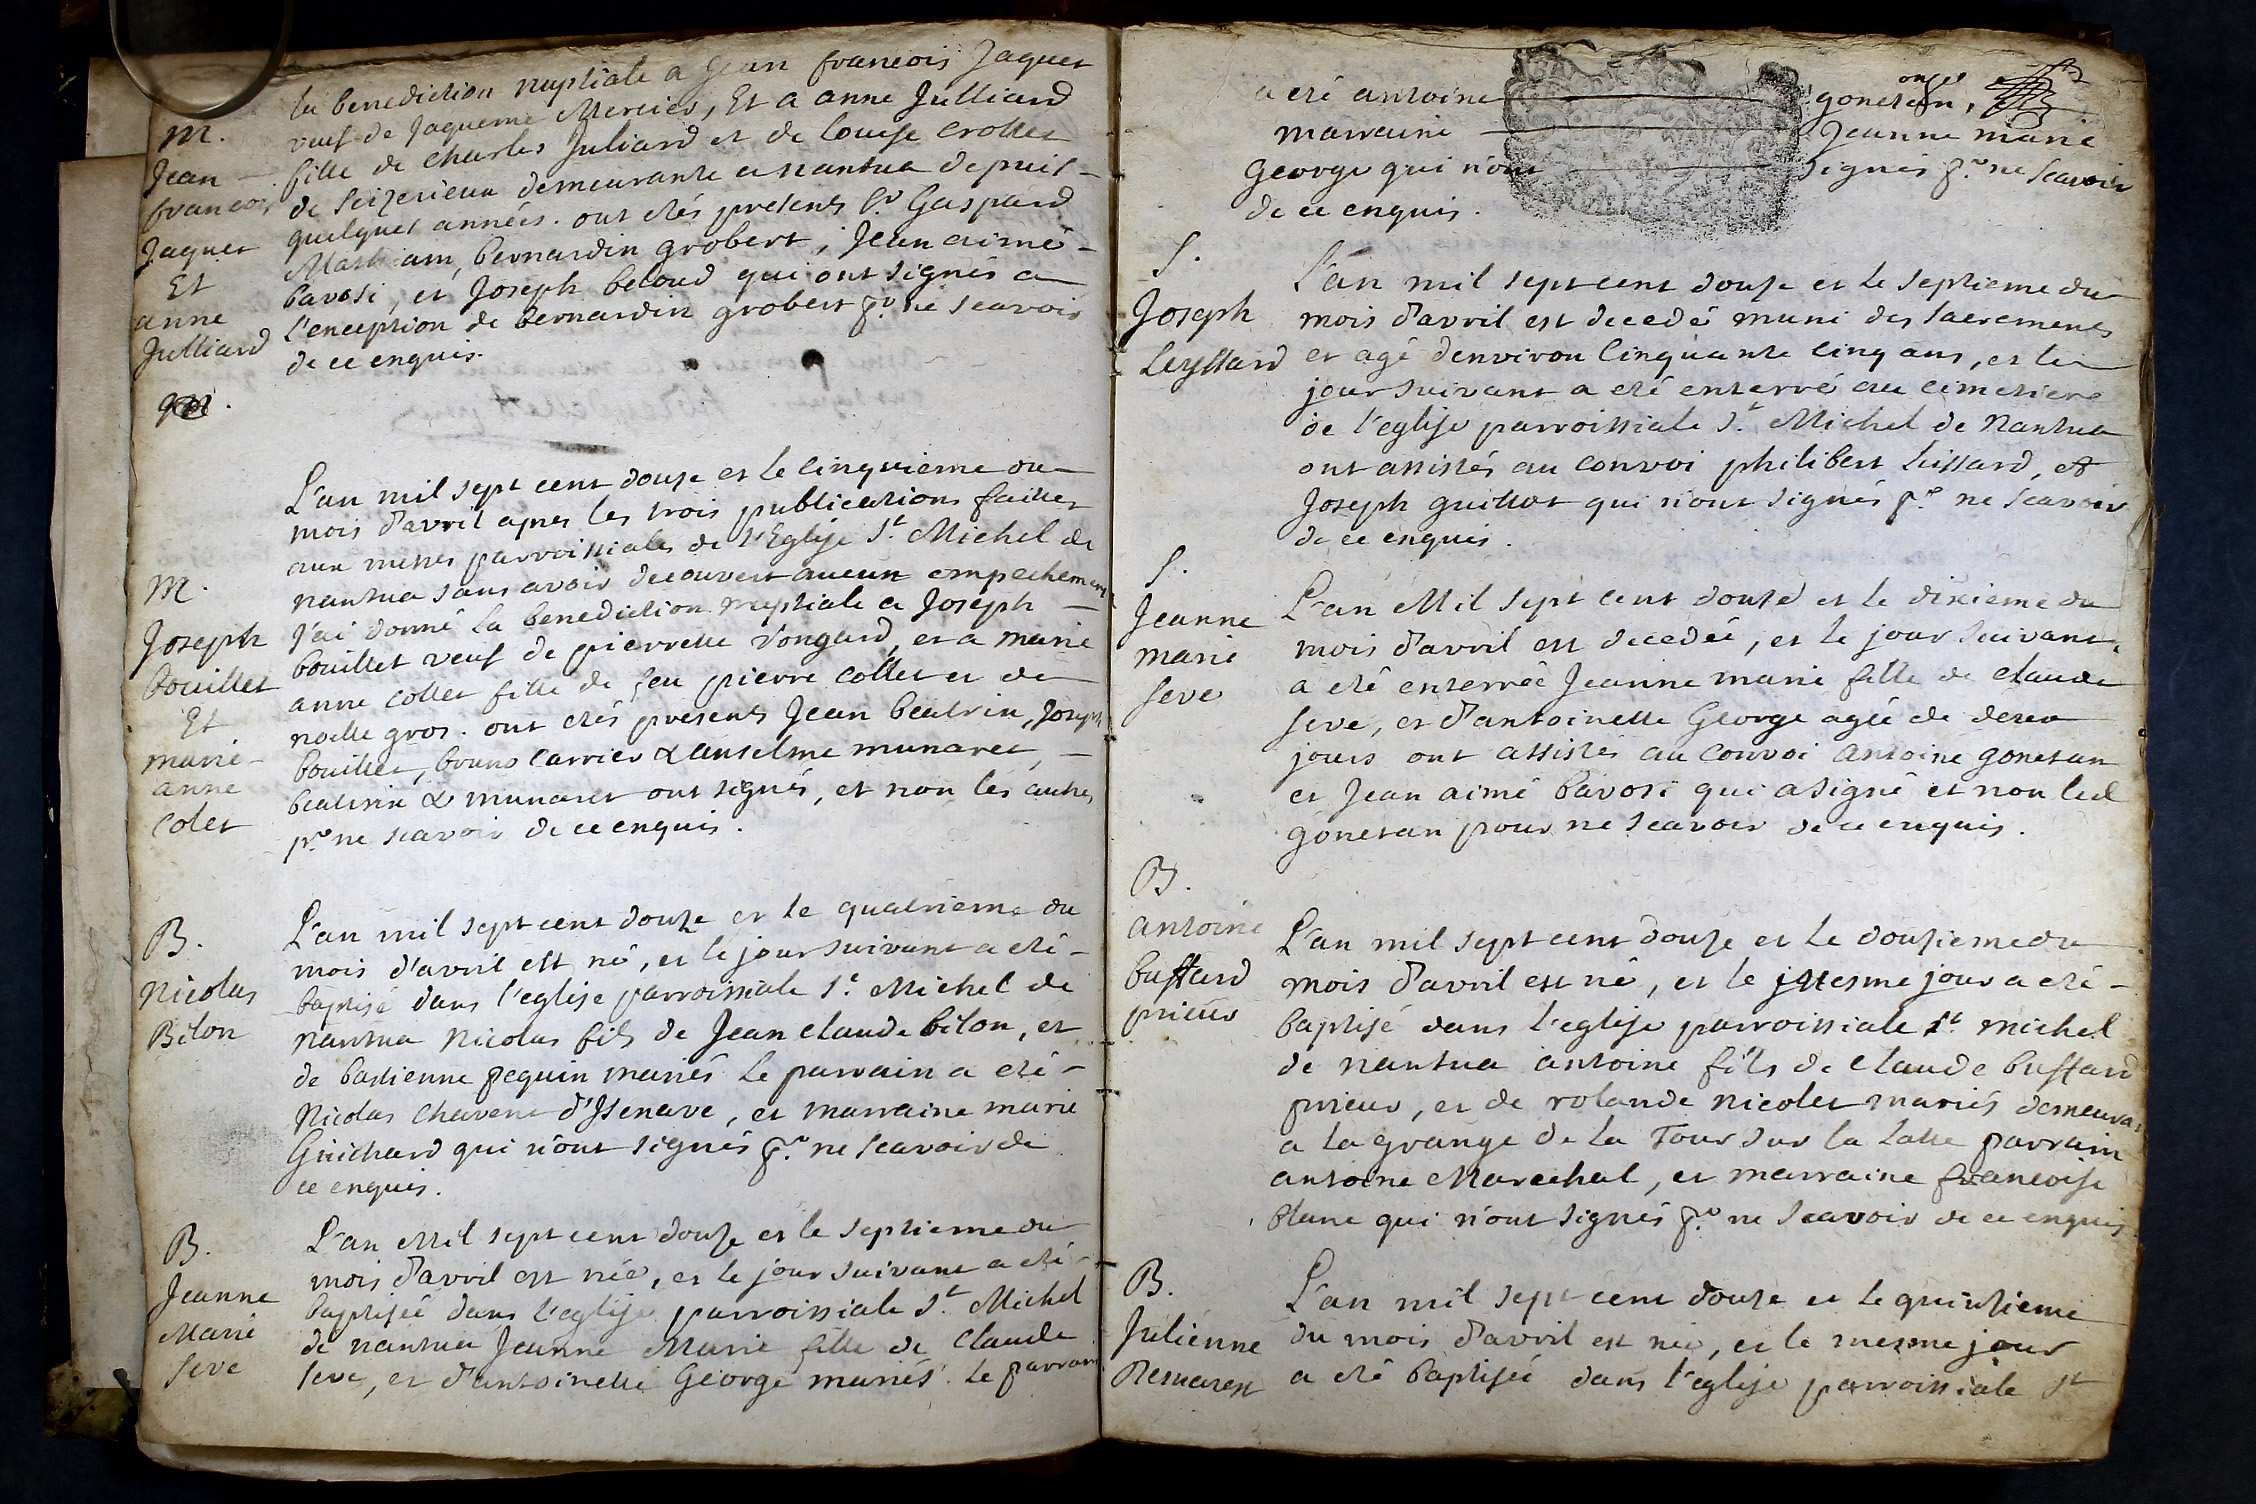 la benediction nuptiale a Jean francois Jaquet
veuf de Jaqueme Mercier, Et a anne Julliard
fille de Charles Juliard et de louise Crollet
de Seizerieux demeurante a nantua depuis
quelques années. ont etés presents Sr Gaspard
Mathiam, bernardin grobert, Jean aimé
bavosi, et Joseph beloud qui ont signés a
l'exception de bernardin grobert pr. ne scavoir
de ce enquis.
M.
Jean
francois
Jaquet
Et
anne
Julliard
L'an mil sept cent douze et le cinquieme du
mois d'avril apres les trois publications faittes
aux messes parroissiales de l'Eglise St. Michel de
nantua sans avoir decouvert aucun empechement
j'ai donné la benediction nuptiale a Joseph
bouillet veuf de pierrette vongard, et a marie
anne collet fille de feu pierre collet et de
noelle gros. ont etés presents Jean beatrix, Joseph
bouillet, bruno Carrier & anselme munaret,
beatrix & munaret ont signés, et non les autres
pr. ne scavoir de ce enquis.
M.
Joseph
bouillet
Et
marie
anne
colet
L'an mil sept cent douze et le quatrieme du
mois d'avril est né, et le jour suivant a eté
baptisé dans l'eglise parroissiale St. Michel de
nantua Nicolas fils de Jean claude bilon, et
de bastienne pequin mariés le parrain a eté
Nicolas Chavent d'Isenave, et marraine marie
Guichard qui n'ont signés pr. ne scavoir de
ce enquis.
B.
Nicolas
Bilon
L'an Mil sept cent douze et le septieme du
mois d'avril est née, et le jour suivant a eté
baptisée dans l'eglise parroissiale St. Michel
de nantua Jeanne Marie fille de Claude
seve, et d'antoinette George mariés. Le parrain
B.
Jeanne
Marie
Seve
a eté antoine gonetan,
marraine Jeanne marie
George qui n'ont signés pr. ne scavoir
de ce enquis.
S.
Joseph
Leyssard
L'an mil sept cent douze et le septieme du
mois d'avril est decedé muni des sacrements
et agé d'environ cinquante cinq ans, et le
jour suivant a eté enterré au cimetiere
de l'eglise parroissiale St. Michel de Nantua
ont assistés au convoi philibert luissard, et
Joseph guillot qui n'ont signés pr. ne scavoir
de ce enquis.
S.
Jeanne
marie
seve
L'an Mil sept cent douze et le dixieme du
mois d'avril est decedée, et le jour suivant
a eté enterrée Jeanne marie fille de claude
seve, et d'antoinette George agée de deux
jours ont assistés au convoi antoine gonetan
et Jean aimé bavosi qui a signé et non led
gonetan pour ne scavoir de ce enquis.
B.
antoine
buffard
prieur
L'an mil sept cent douze et le douzieme du
mois d'avril est né, et le mesme jour a eté
baptisé dans l'eglise parroissiale St. michel
de nantua antoine fils de claude buffard
prieur, et de rolande nicolet mariés demeurants
a la grange de la Tour sur la latte parrain
antoine Marechal, et marraine francoise
blanc qui n'ont signés pr. ne scavoir de ce enquis
B.
Julienne
L'an mil sept cent douze et le quinzieme
du mois d'avril est née, et le mesme jour
a eté baptisée dans l'eglise parroissiale St